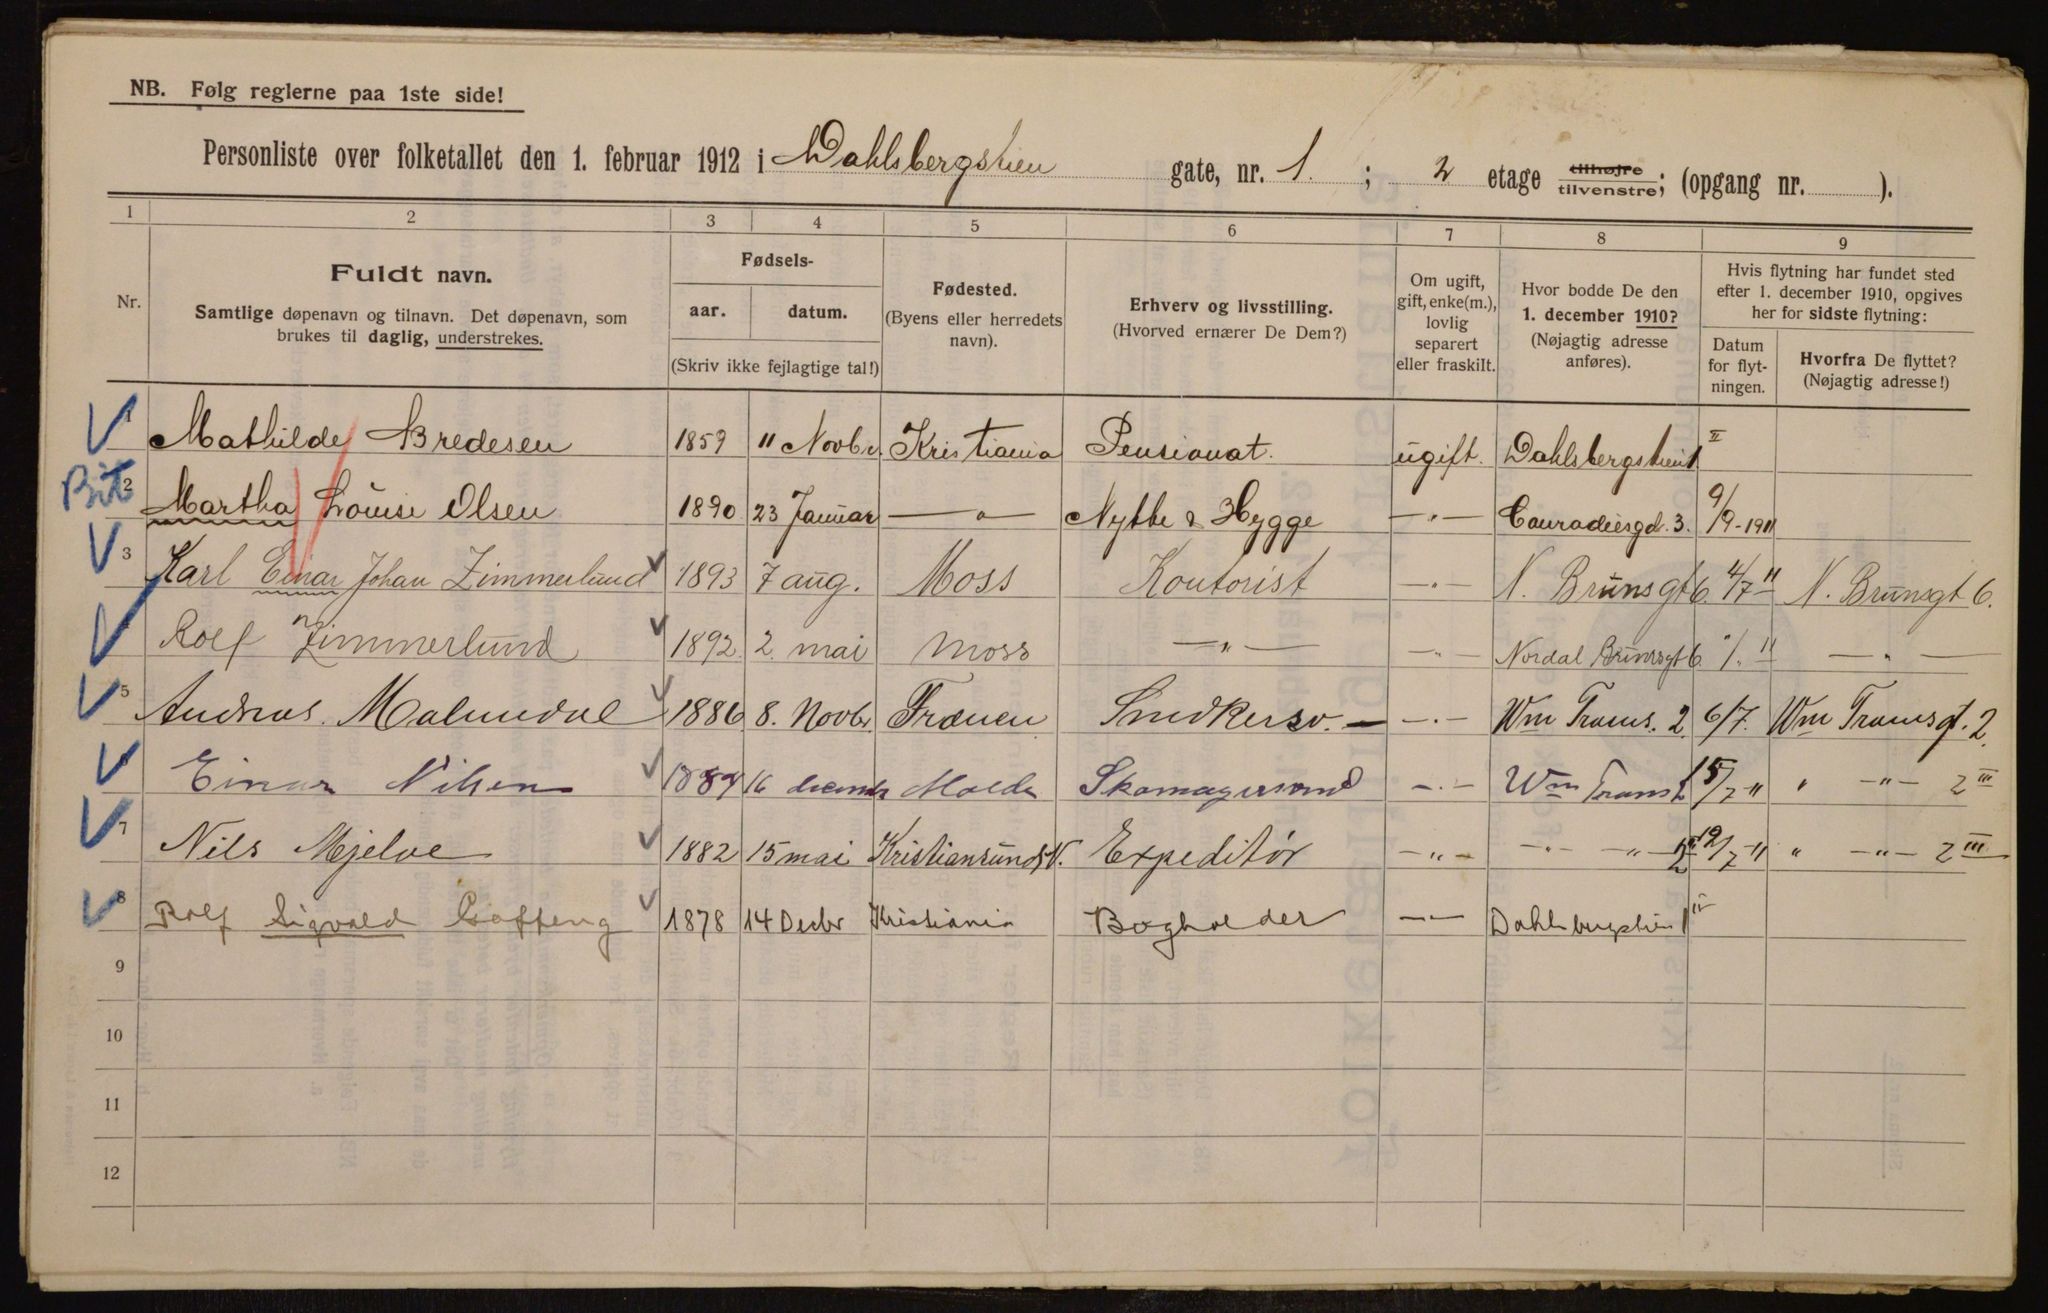 NB. Følg reglerne paa 1ste side!
Personliste over folketallet den 1. februar 1912 i Dahlsbergstien gate, nr. 1. ; 2 etage tilhøjre tilvenstre; (opgang nr. ).
1 2 3 4 5 6 7 8 9
Nr.
Fuldt navn.
Samtlige døpenavn og tilnavn. Det døpenavn, som
brukes til daglig, understrekes.
Fødsels-
aar. datum.
(Skriv ikke fejlagtige tal!)
Fødested.
(Byens eller herredets
navn).
Erhverv og livsstilling.
(Hvorved ernærer De Dem?)
Om ugift,
gift, enke(m.),
lovlig
separert
eller fraskilt.
Hvor bodde De den
1. december 1910?
(Nøjagtig adresse
anføres).
Hvis flytning har fundet sted
efter 1. december 1910, opgives
her for sidste flytning:
Datum
for flyt-
ningen.
Hvorfra De flyttet?
(Nøjagtig adresse!)
1 Mathilde Bredesen 1859 11 Novbr. Kristiania Pensionat. ugift. Dahlsbergstien 1 II
2 Martha Louise Olsen 1890 23 Januar — " — Nytte & Hygge — " — Conradiesgd. 3. 9/9-1911
3 Karl Einar Johan Zimmerlund 1893 7 aug. Moss Kontorist — " — N. Brunsgt 6. 4/7 11 N. Brunsgt 6.
4 Rolf Zimmerlund 1892. 2. mai Moss — " — — " — Nordal Brunsgt 6. "/" 11 — " —
5 Andreas Malmedal 1886 8. Novbr. Frænen Snedkersv. — — " — Wm Trams. 2. 6/7. Wm Tramsgt. 2.
6 Einar Nilsen 1889 16 decembr Molde Skomagersvend — " — Wm Trams 2 15/7 11 " — " — 2 III
7 Nils Mjelve 1882 15 mai Kristiansund N. Expeditør — " — — " — " — 2 III 12/7 - 11 " — " — 2 III
8 Rolf Sigvald 1878 14 Decbr Kristiania Bogholder — " — Dahlsbergstien 1 II
9
10
11
12